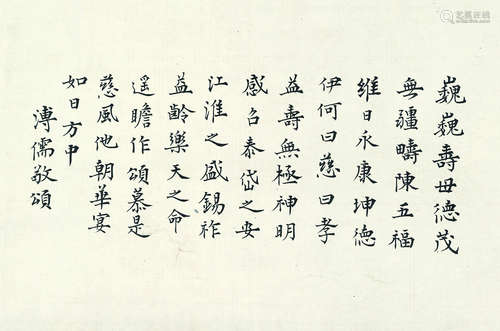 巍巍壽母德茂
無疆疇陳五福
維日永康坤德
伊何曰慈曰孝
益壽無極神明
感召泰岱之安
江淮之盛錫祚
益齡樂天之命
遥瞻作頌慕是
慈風他朝華宴
如日方中
溥儒敬頌